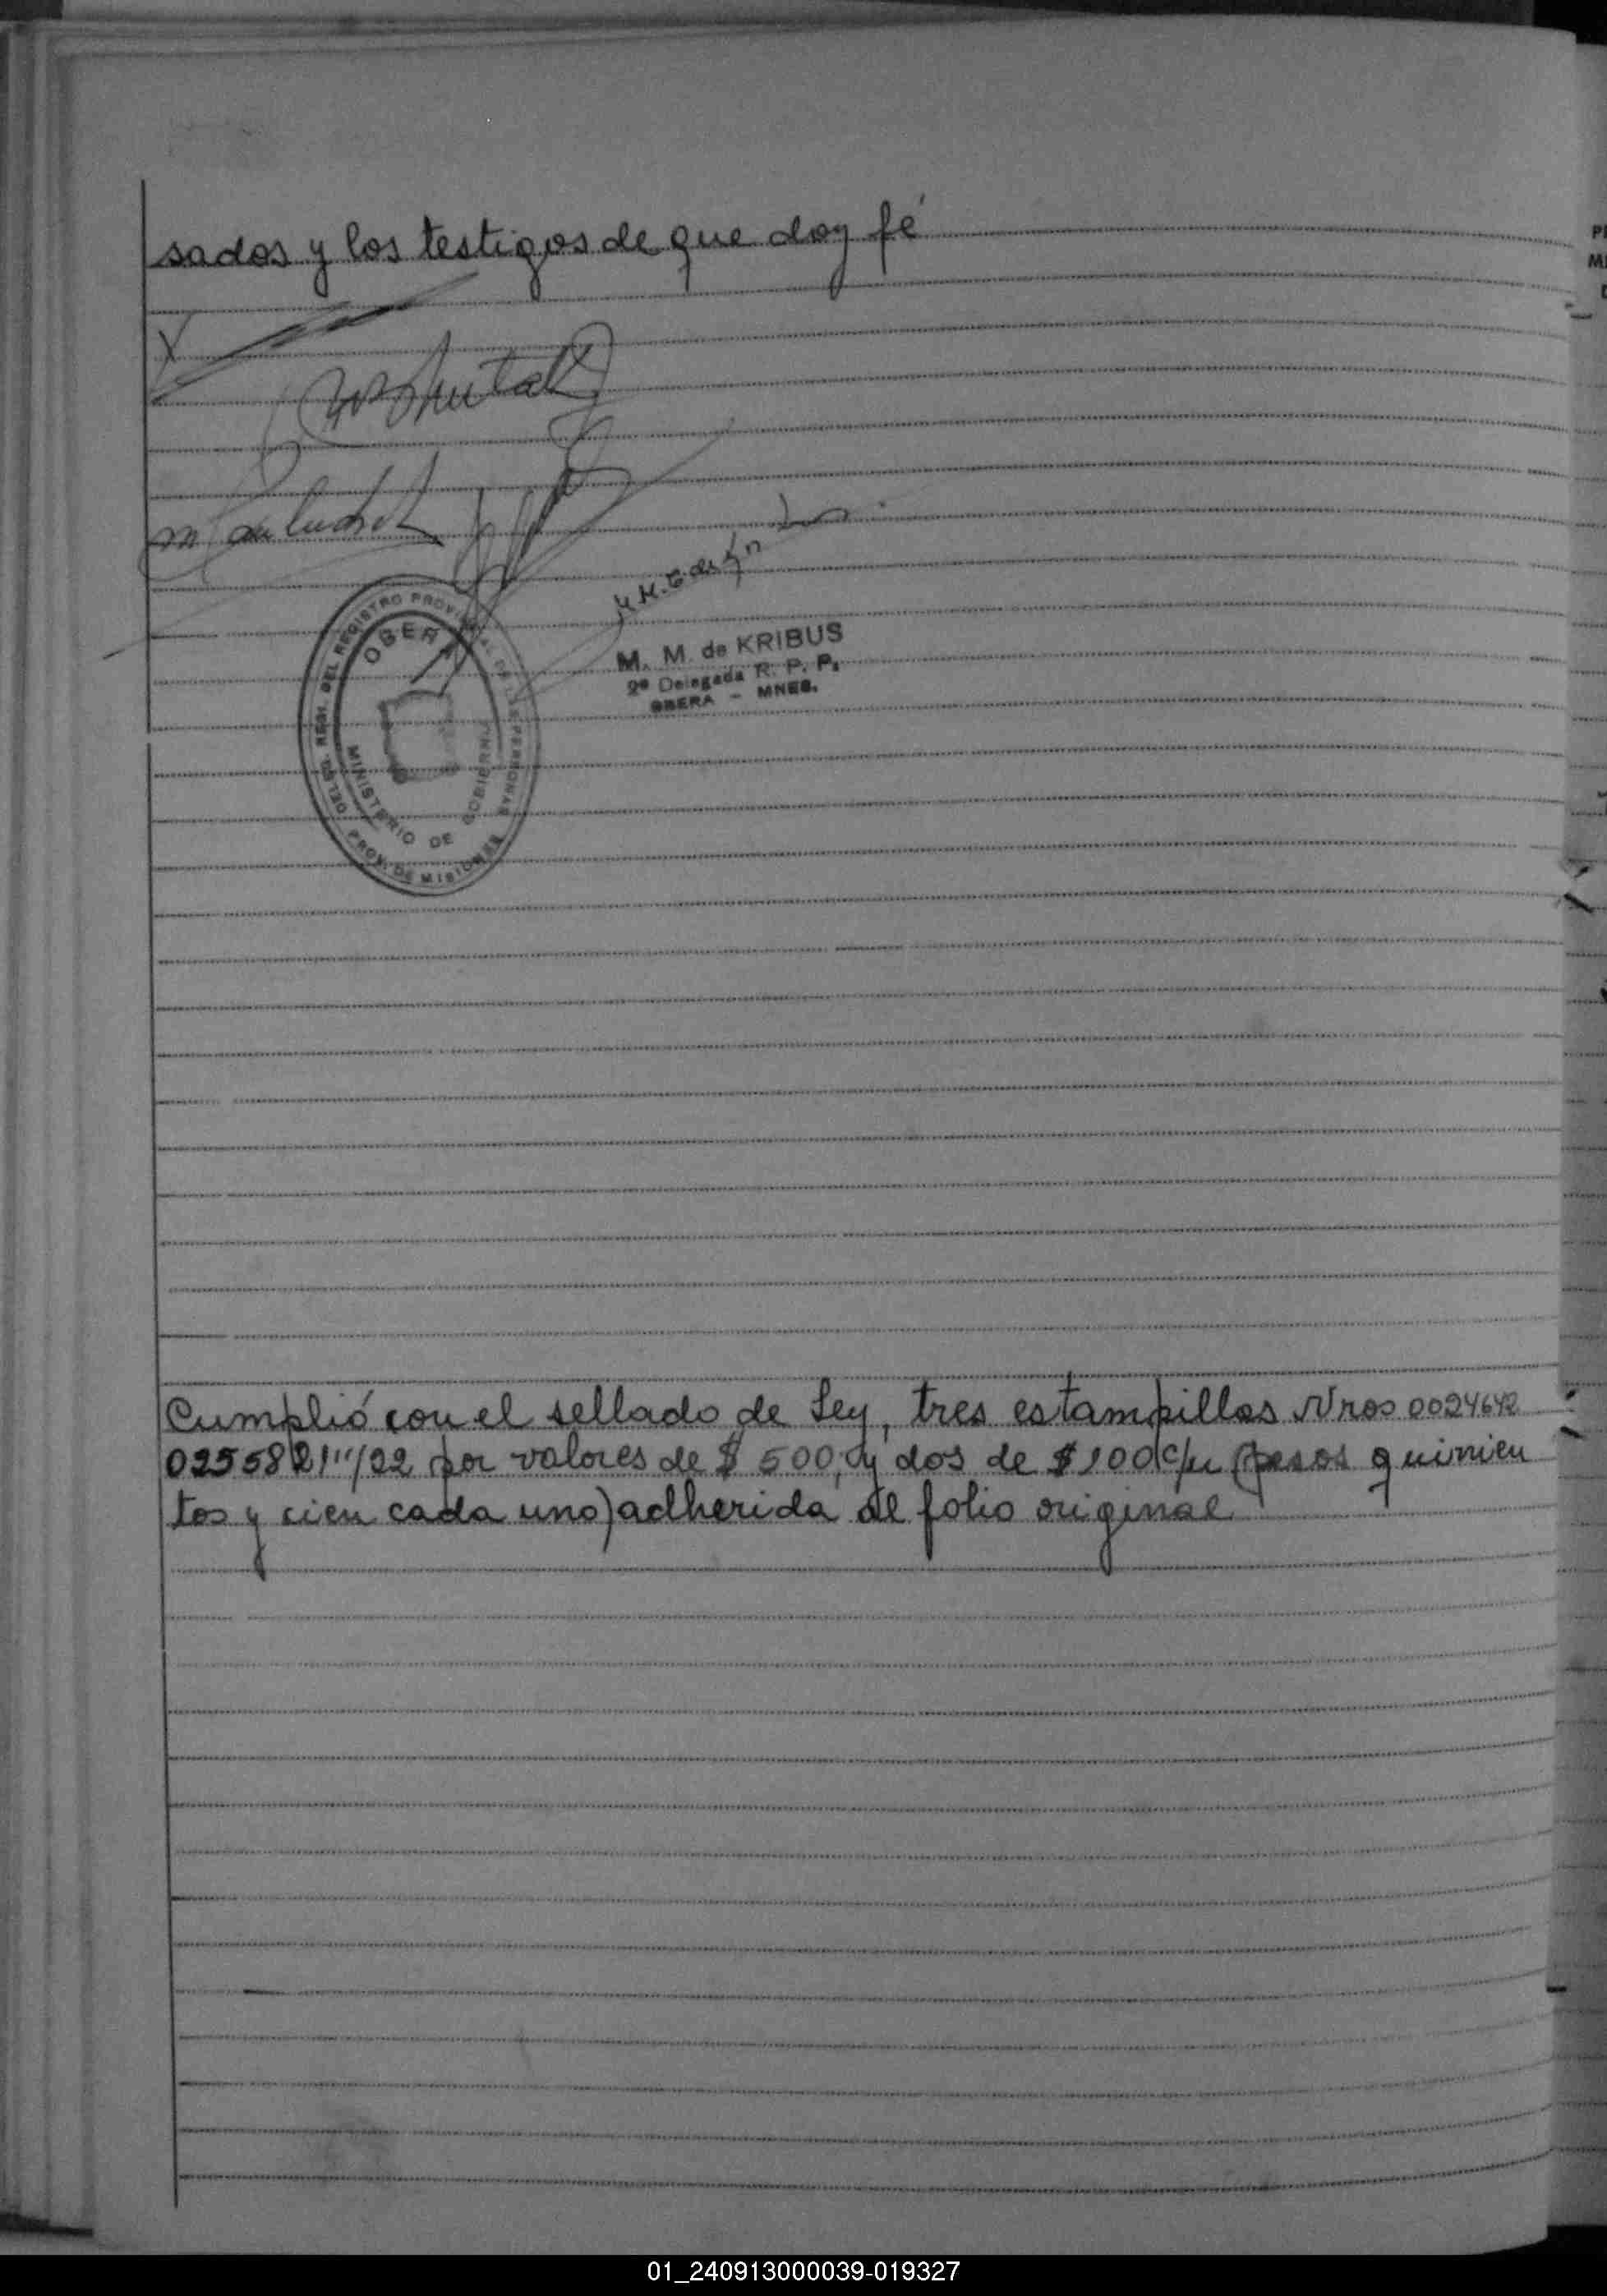 sados y los testigos de que doy fé
X
M. M. de KRIBUS
2ª Delegada R. P. P.
OBERA - MNES.
DELEG. REGL. DEL REGISTRO PROVINCIAL DE LAS PERSONAS
OBERA
MINISTERIO DE GOBIERNO
PROV. DE MISIONES
Cumplió con el sellado de Ley, tres estampillas Nros 0024642
por valores de $ 500, y dos de $ 100 c/u (pesos quinien
tos y cien cada uno) adherida al folio original
01_240913000039-019327